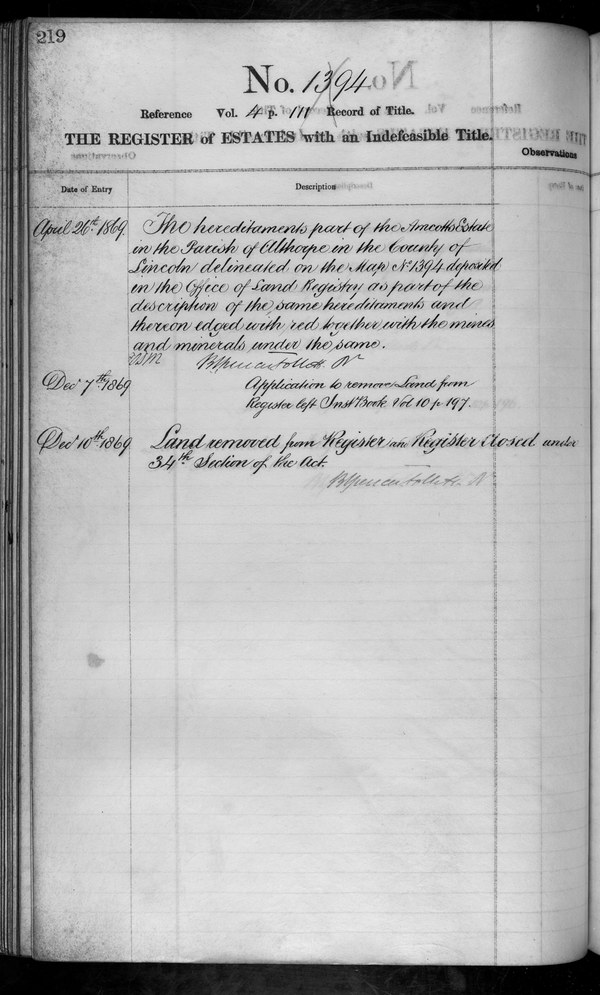 219
No. 1394
Reference Vol. 4 p. 111 Record of Title.
THE REGISTER of ESTATES with an Indefeasible Title.
Observations
Date of Entry
Description
April 26th 1869 The hereditaments part of the Amcotts Estate
in the Parish of Althorpe in the County of
Lincoln delineated on the Map No 1394 deposited
in the Office of Land Registry as part of the
description of the same hereditaments and
thereon edged with red together with the mines
and minerals under the same.
B Spencer Follett. Rr
Dec 7th 1869 Application to remove Land from
Register left Inst Book Vol 10 p 197.
Dec 10th 1869 Land removed from Register and Register closed under
34th Section of the Act.
B Spencer Follett. Rr